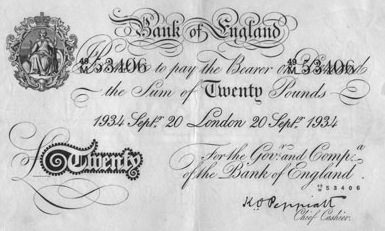 Bank of England
48/M 53406 Promise to pay the Bearer on Demand 48/M 53406
the Sum of Twenty Pounds
1934 Septr. 20 London 20 Septr. 1934
For the Govr. and Compa.
£ Twenty of the Bank of England
48/M 53406
K O Peppiatt
Chief Cashier.